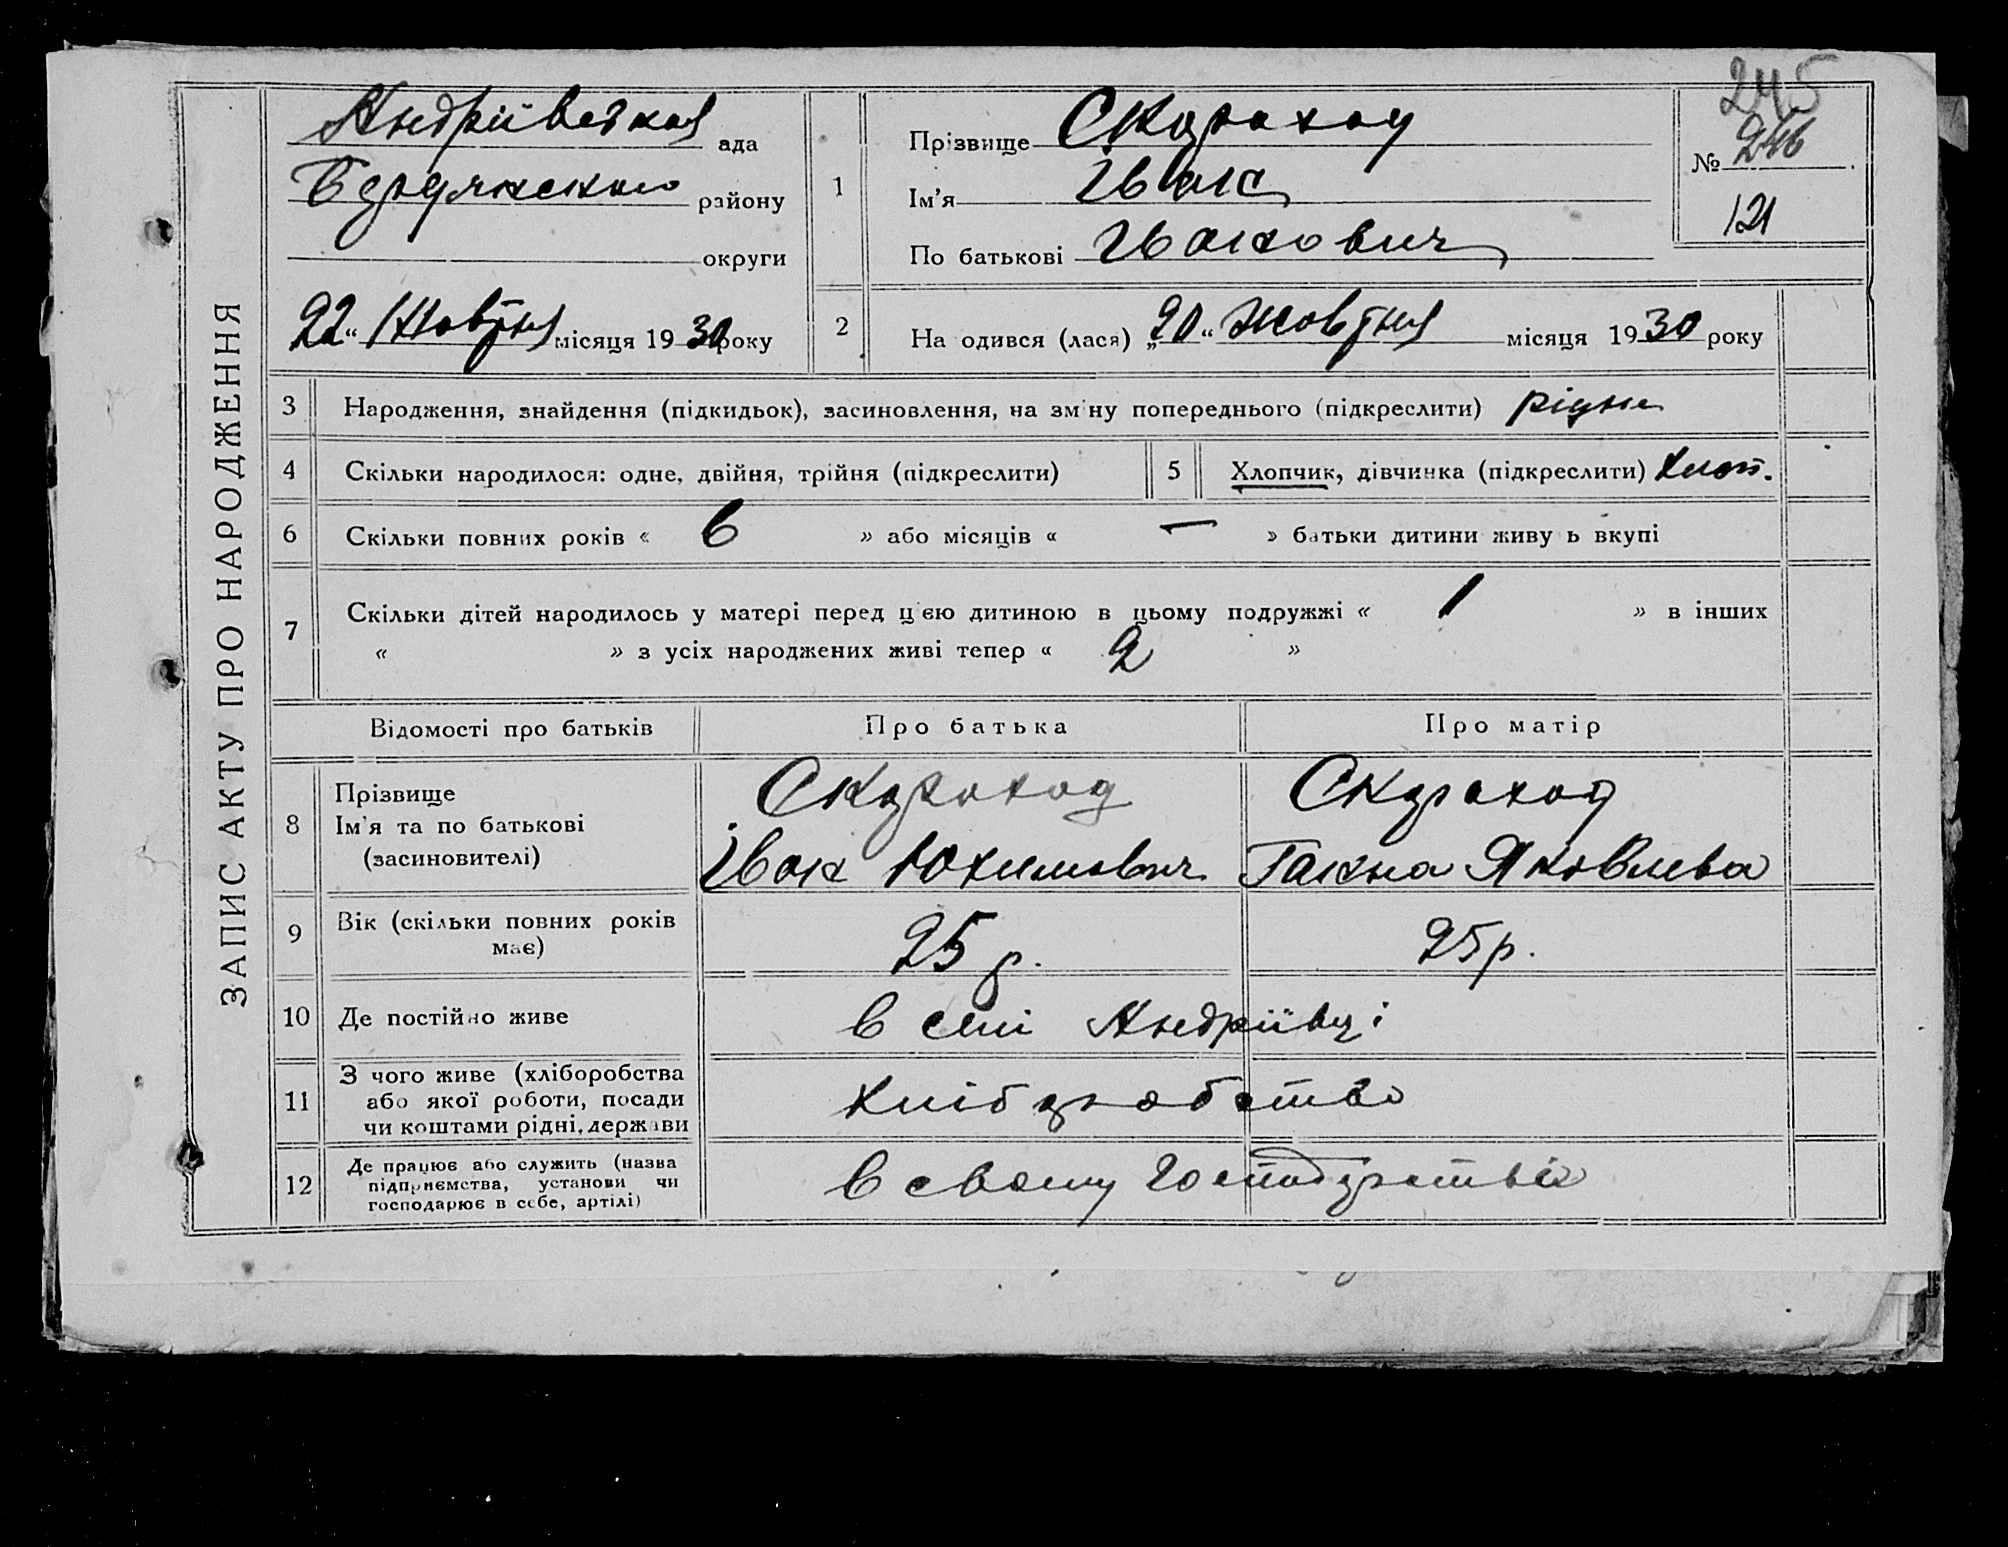 ЗАПИС АКТУ ПРО НАРОДЖЕННЯ
Андріївська ада
Бердянского району
округи
22 “ Жовтня місяця 1930 року
1
Прізвище Скороход
Ім’я Іван
По батькові Іванович
245
№ 246
121
2
На одився (лася) „20“ Жовтня місяця 1930 року
3 Народження, знайдення (підкидьок), засиновлення, на зм ну попереднього (підкреслити) рідне
4 Скільки народилося: одне, двійня, трійня (підкреслити)
5 Хлопчик, дівчинка (підкреслити) хлоп.
6 Скільки повних років « 6 » або місяців « — » батьки дитини живу ь вкупі
7 Скільки дітей народилось у матері перед цією дитиною в цьому подружжі « 1 » в інших
« » з усіх народжених живі тепер « 2 »
Відомості про батьків Про батька Про матір
8 Прізвище
Ім’я та по батькові
(засиновителі)
Скороход
Іван Юхимович
Скороход
Ганна Яковлева
9 Вік (скільки повних років
має)
25 р. 25 р.
10 Де постійно живе в селі Андріївці
11 З чого живе (хліборобства
або якої роботи, посади
чи коштами рідні, держави
хліборобство
12 Де працює або служить (назва
підприємства, установи чи
господарює в себе, артілі)
в своему Господарстві